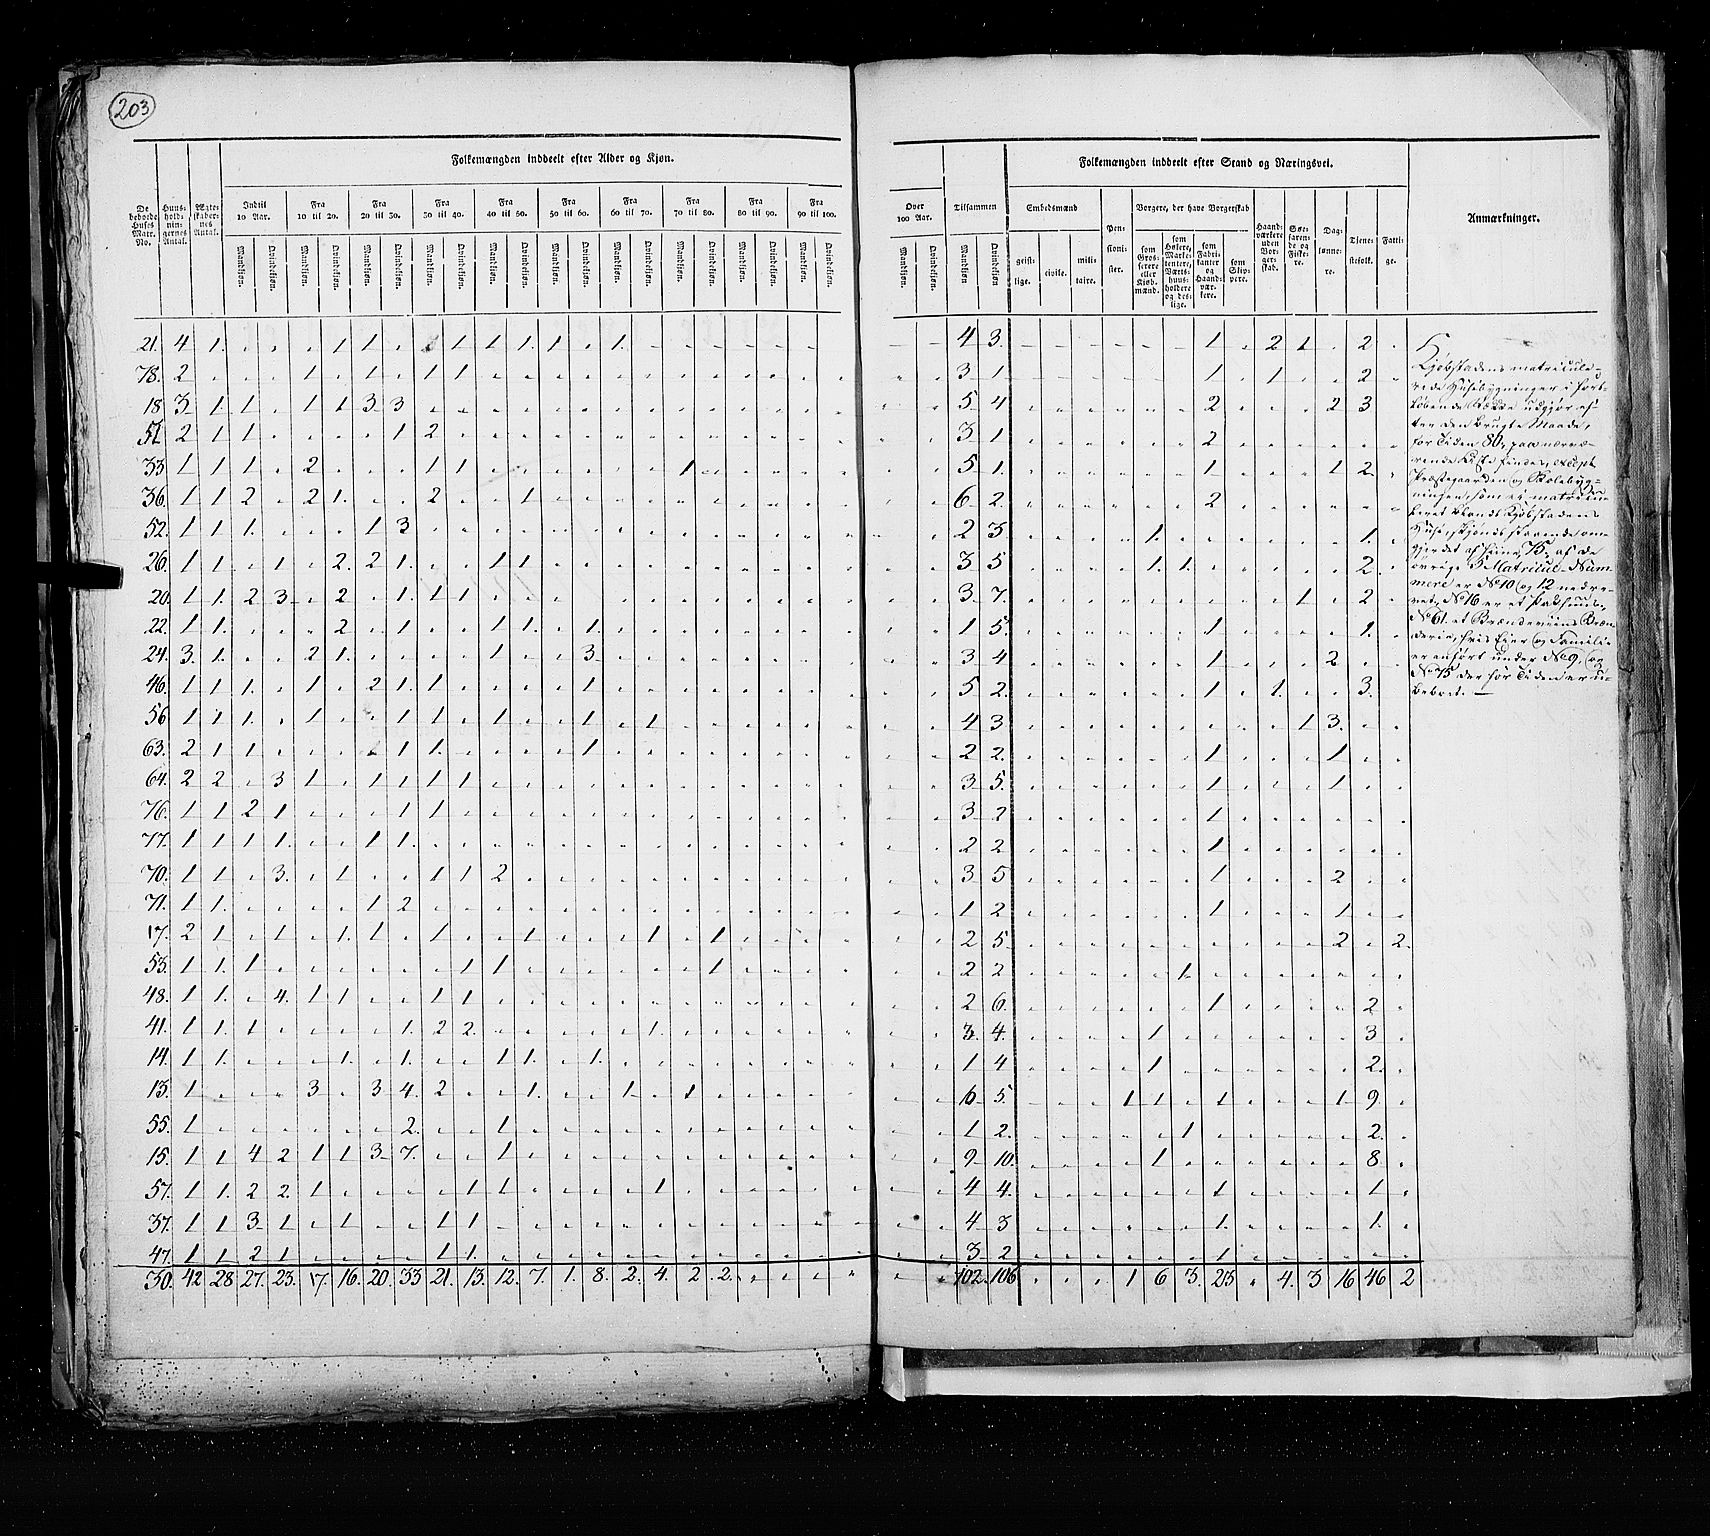 203
Folkemængden inddeelt efter Alder og Kjøn.
Folkemængden inddeelt efter Stand og Næringsvei.
De beboede Huses Matr. No.
Huus-hold-nin-gernes Antal.
Ægte-skaber-nes Antal.
Indtil 10 Aar.
Fra 10 til 20.
Fra 20 til 30.
Fra 30 til 40.
Fra 40 til 50.
Fra 50 til 60.
Fra 60 til 70.
Fra 70 til 80.
Fra 80 til 90.
Fra 90 til 100.
Over 100 Aar.
Tilsammen
Embedsmænd
Pen-sioni-ster.
Borgere, der have Borgerskab
Haand-værkere uden Bor-ger-skab.
Søe-faren-de og Fiske-re.
Dag-lønne-re.
Tjene-stefolk.
Fatti-ge.
Anmærkninger.
Mandkjøn. Qvindekjøn. Mandkjøn. Qvindekjøn. Mandkjøn. Qvindekjøn. Mandkjøn. Qvindekjøn. Mandkjøn. Qvindekjøn. Mandkjøn. Qvindekjøn. Mandkjøn. Qvindekjøn. Mandkjøn. Qvindekjøn. Mandkjøn. Qvindekjøn. Mandkjøn. Qvindekjøn. Mandkjøn. Qvindekjøn. Mandkjøn. Qvindekjøn.
geist-lige.
civile.
mili-taire.
som Gros-serere eller Kjøb-mænd.
som Høkere, Marke-tenter, Værts-huus-holdere og des-lige.
som Fabri-kanter og Haand-vær-kere.
som Skip-pere.
21. 4 1. 1 1 1 1 1. 1 1. 4 3. 1 2 1 2
78. 2 1 1 1 1 3 1 1 1 2
18 3 1. 1 1 1 3 3 5 4 2 2 3
51 2 1 1 1 2 3 1 2
33 1 1 1 2 1 1 1 5 1. 1 1 2
36 1 1 2 2 1. 2 1 6 2 2
52. 1 1 1. 1 3 2 3 1. 1.
26. 1 1 1 2 2 1. 1 1 3 5 1. 1. 2.
20. 1 1. 2 3 2 1. 1 1 3 7. 1 2
22. 1 1. 2 1 1 1. 1. 1 5. 1 1.
24. 3. 1. 2 1. 1 3 3 4 1 2
46. 1 1 1. 1 2 1. 1 1 5 2. 1 1. 3.
56 1 1 1. 1 1 1 1 1 1 4 3 1 3.
63. 2 1 1 1 1. 1 2 2. 1 1
64. 2 2 3 1 1 1 1 1 3 5. 1 1
76. 1 1 2 1 1 1 3 2 1
77. 1 1 1 1. 1 1. 2 2 1
70. 1 1 3. 1 1 1 2 3 5 1 2
71. 1 1. 1 2 1 2 1 1
17. 2 1 1 1. 1 1 1 1 1 2 5 2 2.
53. 1 1. 1 1 1 1 2 2 1
48. 1 1. 4. 1 1 1 1 2 6. 1 2
41. 1 1. 1 1. 2 2. 1. 3 4. 1 3
14. 1 1. 1. 1. 1 1. 1. 1 4 1 2.
13. 1 3 3 4. 2 1. 1 1 6 5. 1 1 1 1 1 9
55. 1 2. 1 1 2. 1 2.
15. 1 1 4 2 1 1 3 7. 1 9 10. 1 8
57. 1 1. 2 2. 1 1 1 1 4 4. 1 1
37. 1 1 3 1 1 1 1 4 3 1. 1.
47. 1 1 2 1 1 1. 3 2 1
30. 42 28 27. 23. 17. 16. 20. 33 21. 13. 12. 7. 1. 8. 2. 4. 2 2. 102. 106 1 6 3. 25 4. 3 16 46 2
Kjøbstadens matricule-
rede Huusebygninger i fort-
løbende Række udgjør ef-
ter den brugte Maade,
for Tiden 80,
Præstegaarden og Skolebyg-
ningen, som ei matricu-
leret blandt Kjøbstadens
75. af de
øvrige 3 Matricul-Num-
mere er No 10 og 12 nedre-
vet, No 16 er et Pakhuus,
No 61. et Brændeviins Bræn-
derie, hvis Eier og Familie
er anført under No 9. og
No 75 der for Tiden er u-
beboet. —